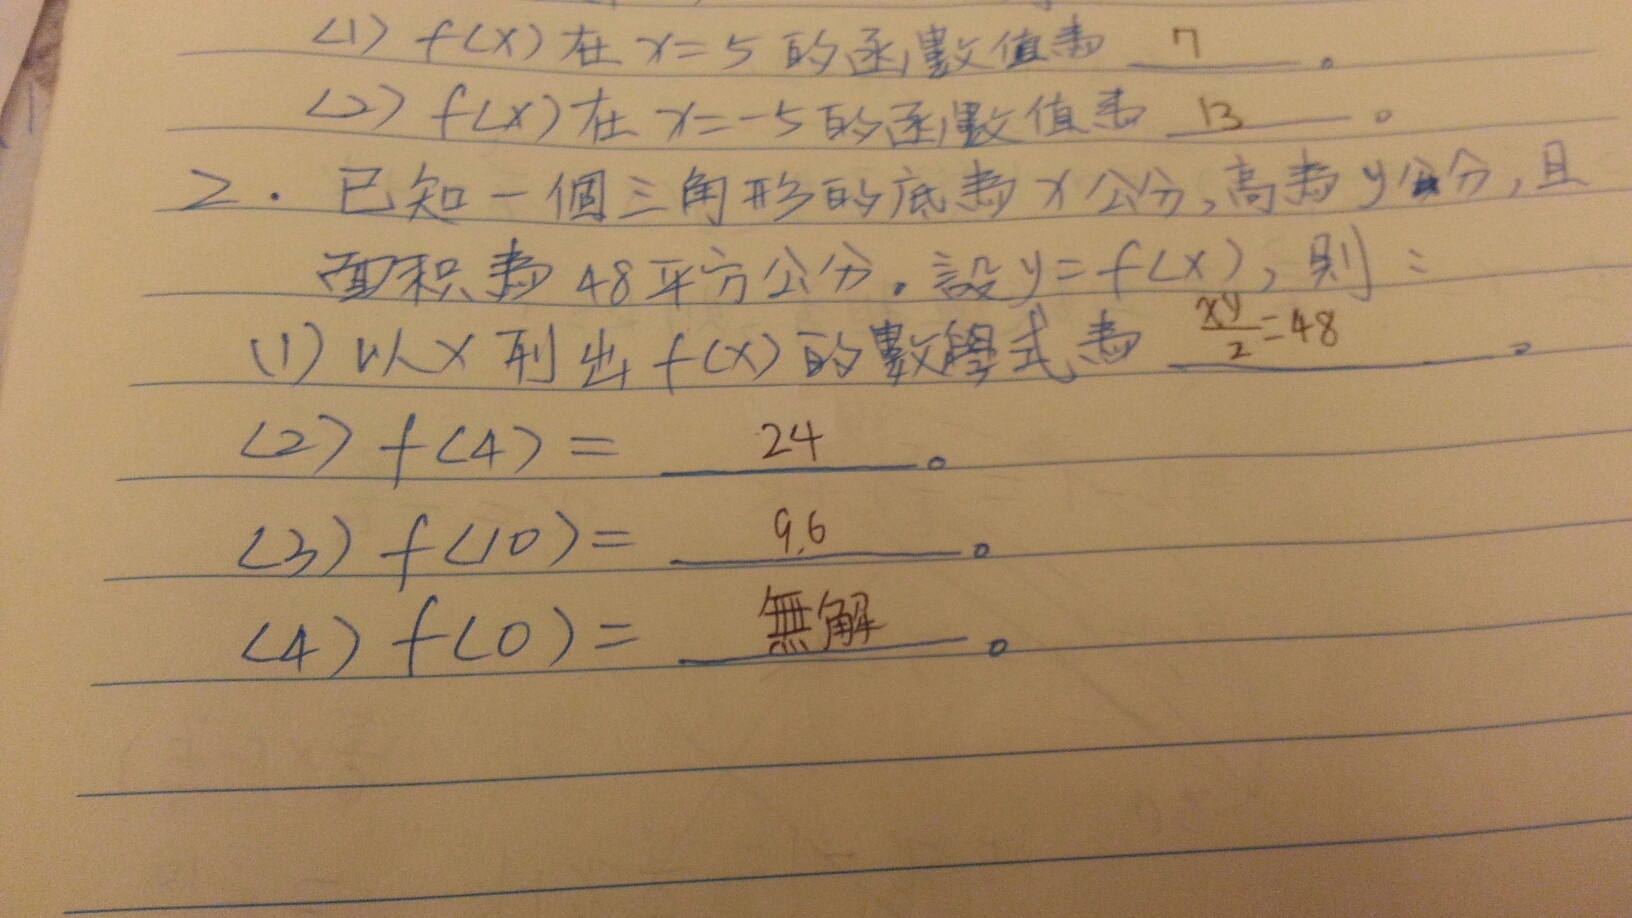 (1) f(x)在x=5的函數值為 7 。
(2) f(x)在x=-5的函數值為 13 。
2. 已知一個三角形的底為x公分,高為y公分,且
面积為48平方公分。設y=f(x),則:
(1) 以x列出f(x)的數學式為 xy/2=48 。
(2) f(4)= 24 。
(3) f(10)= 9.6 。
(4) f(0)= 無解 。